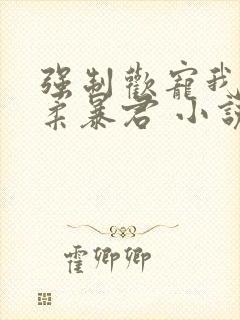 强制歡寵我
柔暴君 小說
霍卿卿